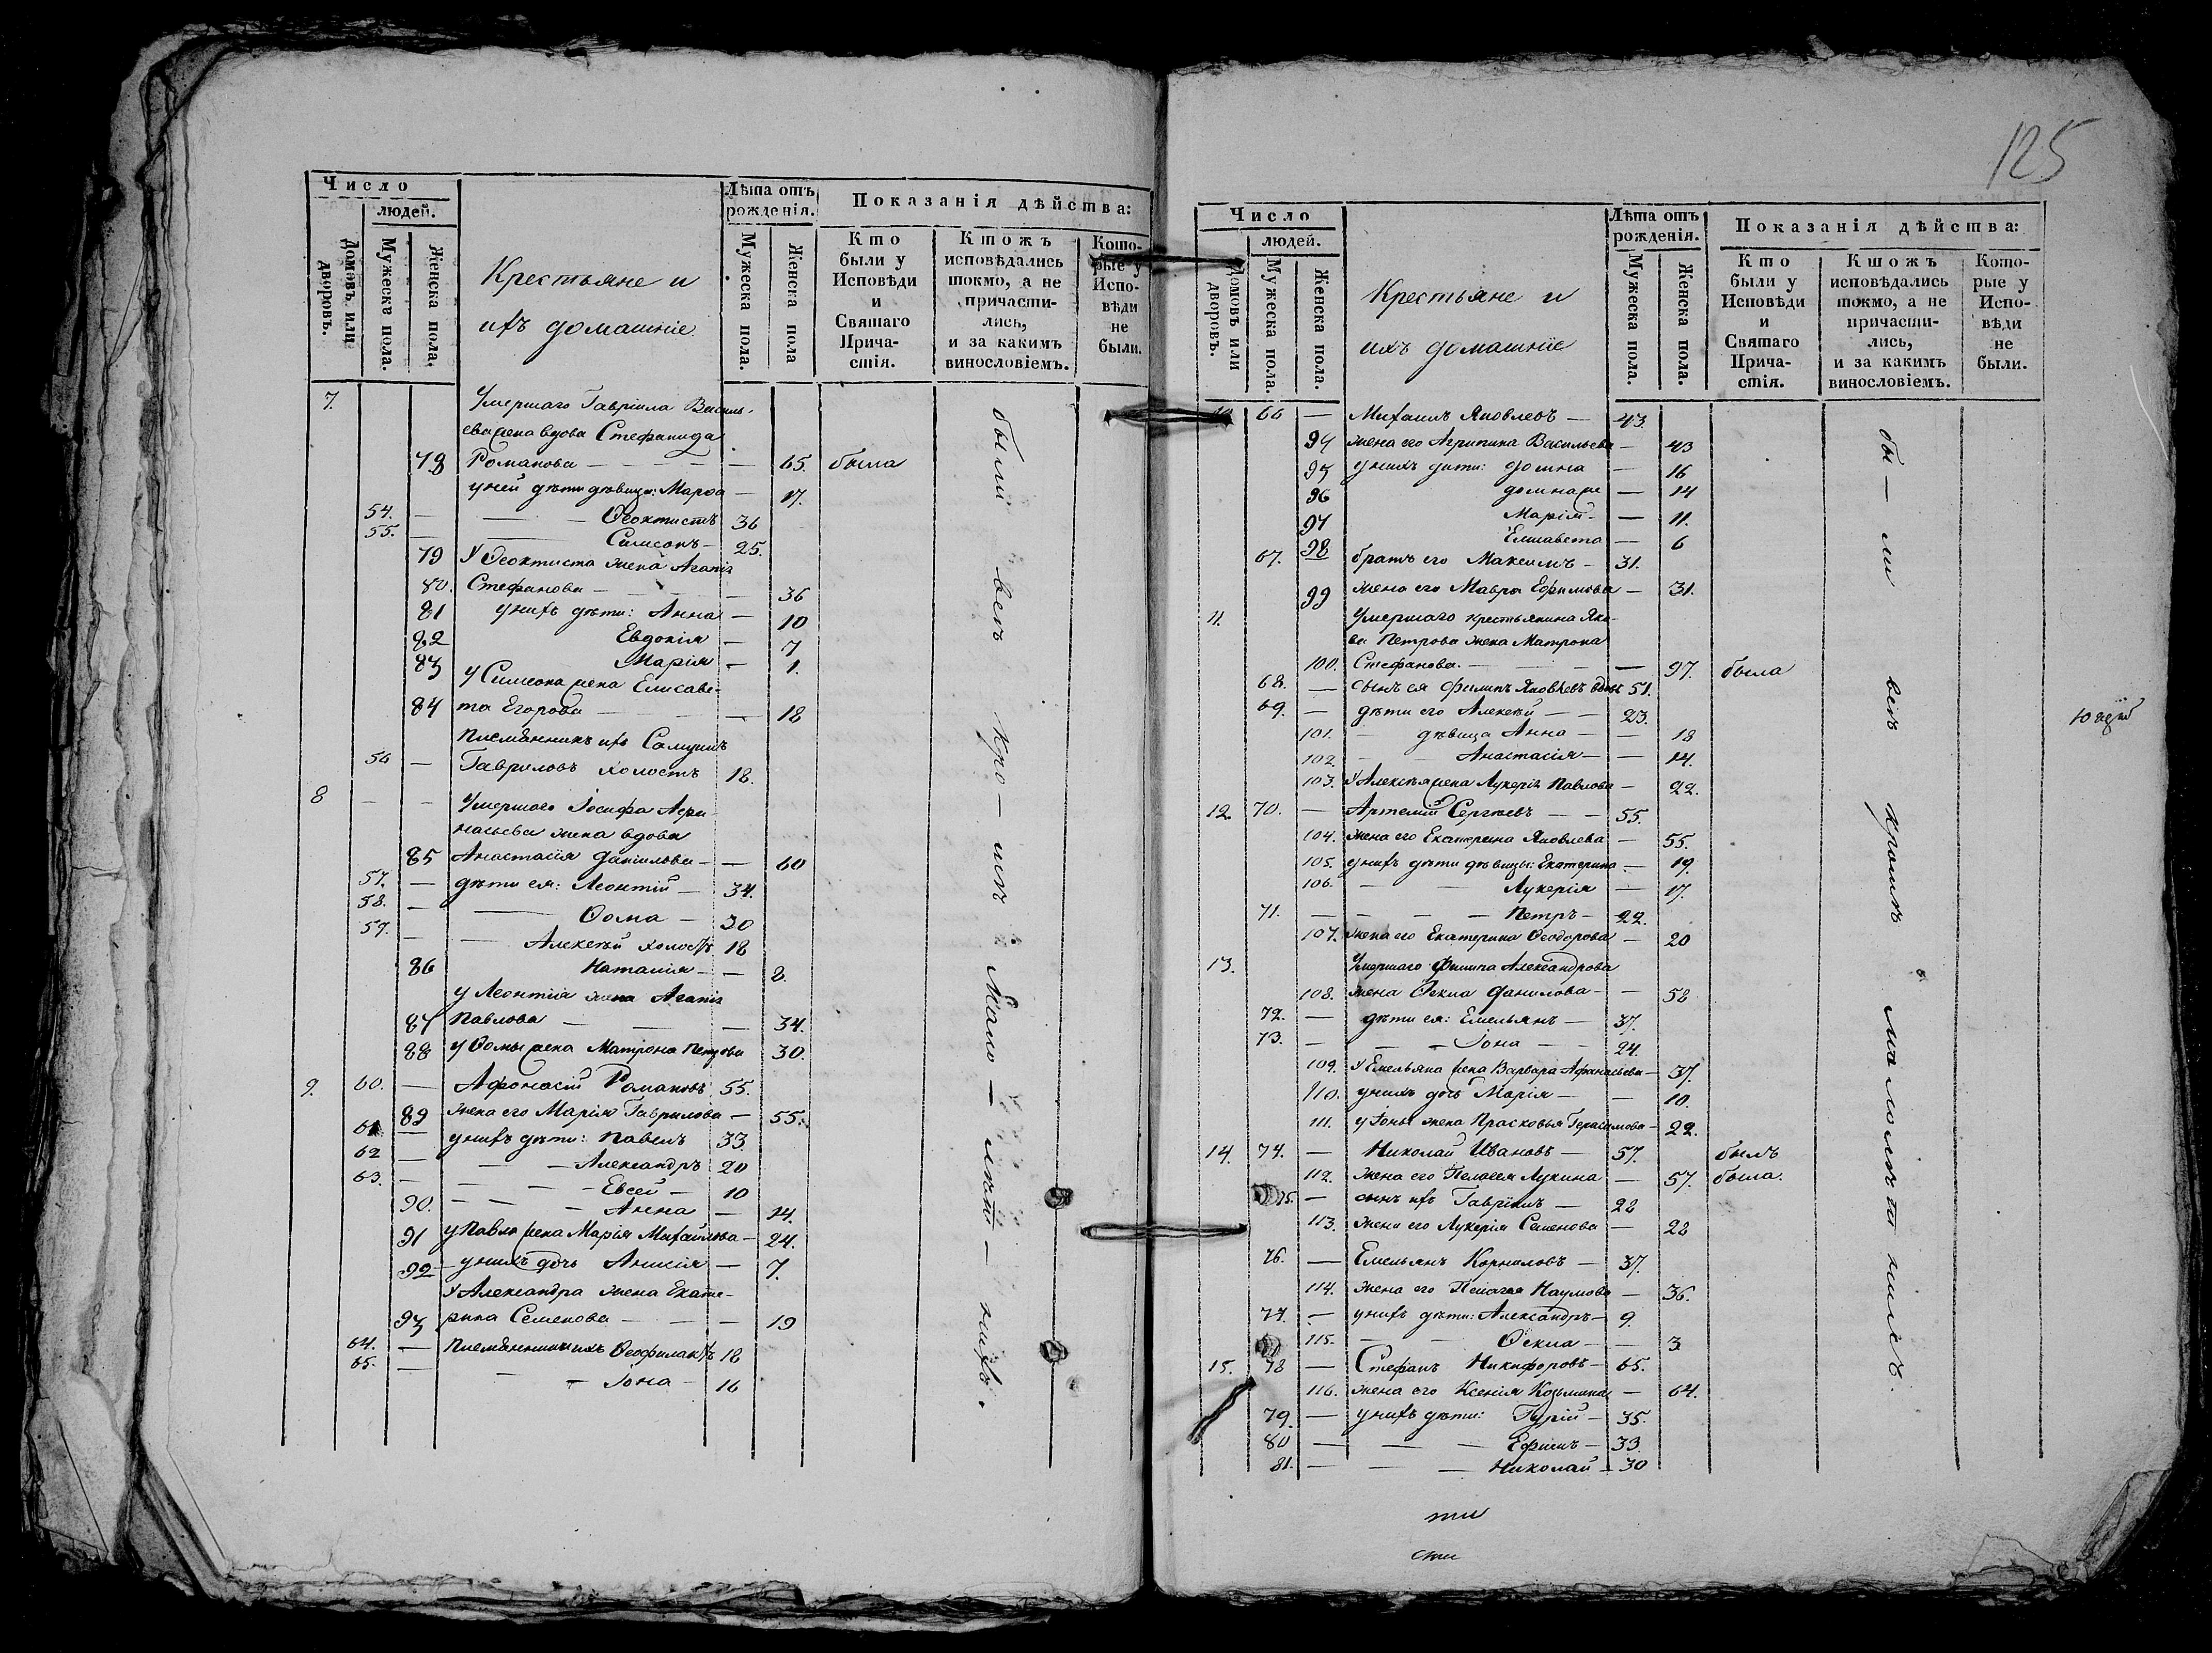 Число
людей.
Домовъ или дворовъ.
Мужеска пола.
Женска пола.
Крестьяне и
ихъ домашніе
Лѣта отъ рожденія.
Мужеска пола.
Женска пола
Показанія дѣйства:
Кто были у Исповѣди и Святаго Прича-стія.
Ктожъ исповѣдались токмо, а не причасти-лись, и за какимъ винословіемъ.
Кото-рые у Испо-вѣди не были.
7. Умершаго Гавріила Василь-
ева жена вдова Стефанида
78 Романова — 65. была
у ней дѣти дѣвица: Марфа — 17.
54. — Ѳеоктистъ 36
55. — Симеонъ — 25.
79 У Ѳеоктиста жена Агапія
80. Стефанова — 36
81 у нихъ дѣти: Анна — 10
82 Евдокія — 7
83 Марія — 1.
у Симеона жена Елисаве-
84 та Егорова — 18
Племянникъ ихъ Самуилъ
56 — Гавриловъ холостъ 18.
8 — — Умершаго Іосифа Афа-
насьева жена вдова
85 Анастасія Данилова — — 60
57. — дѣти ея: Леонтій — 34.
58. — Ѳома — 30
59. — Алексѣй холостъ 18
86 Наталія — — 8.
у Леонтія жена Агапія
87 Павлова — — 34.
88 у Ѳомы жена Матрона Петрова 30.
9. 60. — Афонасій Романовъ 55.
89 жена его Марія Гаврилова — 55.
61 — у нихъ дѣти: Павелъ 33
62 — — Александръ 20
63. — — Евсей — 10
90. — — Анна — 14.
91 у Павла жена Марья Михайлова — 24.
92 — у нихъ дочь Анисія — 7.
У Александра жена Екате-
93 рина Семенова — — 19
64. — Племянники ихъ Ѳеофилактъ 18
65. — — Іона — 16
были всѣ кро — мѣ Мало — лѣт — нихъ.
125
Число
людей.
Домовъ или дворовъ.
Мужеска пола.
Женска пола.
Крестьяне и
ихъ домашніе
Лѣта отъ рожденія.
Мужеска пола.
Женска пола.
Показанія дѣйства:
Кто были у Исповѣди и Святаго Прича-стія.
Ктожъ исповѣдались токмо, а не причасти-лись, и за какимъ винословіемъ.
Кото-рые у Испо-вѣди не были.
10 66 — Михаилъ Яковлевъ — 43.
94 жена его Агрипина Васильева — 43
95 у нихъ дѣти: Домна — 16
96 Домна же — 14
97 Марія — 11.
98 Елисавета — 6
67. братъ его Максимъ — 31.
99 жена его Мавра Ефимова — 31.
11. Умершаго крестьянина Яко-
ва Петрова жена Матрона
100. Стефанова. — — 97. была
68. — сынъ ея Филипъ Яковлевъ вдовъ 51.
69. — дѣти его Алексѣй — — 23.
101. — дѣвица Анна — — 18
102. — Анастасія — — 14.
103. У Алексѣя жена Лукерія Павлова — 22.
12. 70. — Артемій Сергѣевъ — — 55.
104. жена его Екатерина Яковлева — 55.
105. у нихъ дѣти дѣвицы: Екатерина — 19.
106. — — Лукерія — 17.
71. — — — Петръ — 22.
107. жена его Екатерина Ѳеодорова — 20
13. Умершаго Филипа Александрова
108. жена Ѳекла Данилова — — 58
72. — дѣти ея: Емельянъ — 37.
73. — — Іона — — 24.
109. У Емельяна жена Варвара Афанасьева — 37.
110. у нихъ дочь Марія — — 10.
111. у Іоны жена Прасковья Герасимова — 22.
14. 74. — Николай Ивановъ — 57. былъ
112. жена его Пелагея Лукина — 57. была.
75. — сынъ ихъ Гавріилъ — 28
113. жена его Лукерія Семенова — 28
76. — Емельянъ Корниловъ — 37.
114. жена его Пелагея Наумова — 36.
77. — у нихъ дѣти: Александръ — 9.
115. — — Ѳекла — — 3
15. 78 — Стефанъ Никифоровъ — 65.
116. жена его Ксенія Козьмина — 64.
79. — у нихъ дѣти: Гурій — 35.
80 — — — Ефимъ — 33.
81. — — — Николай — 30
бы — ли всѣ кромѣ малолѣтнихъ.
ти
сти